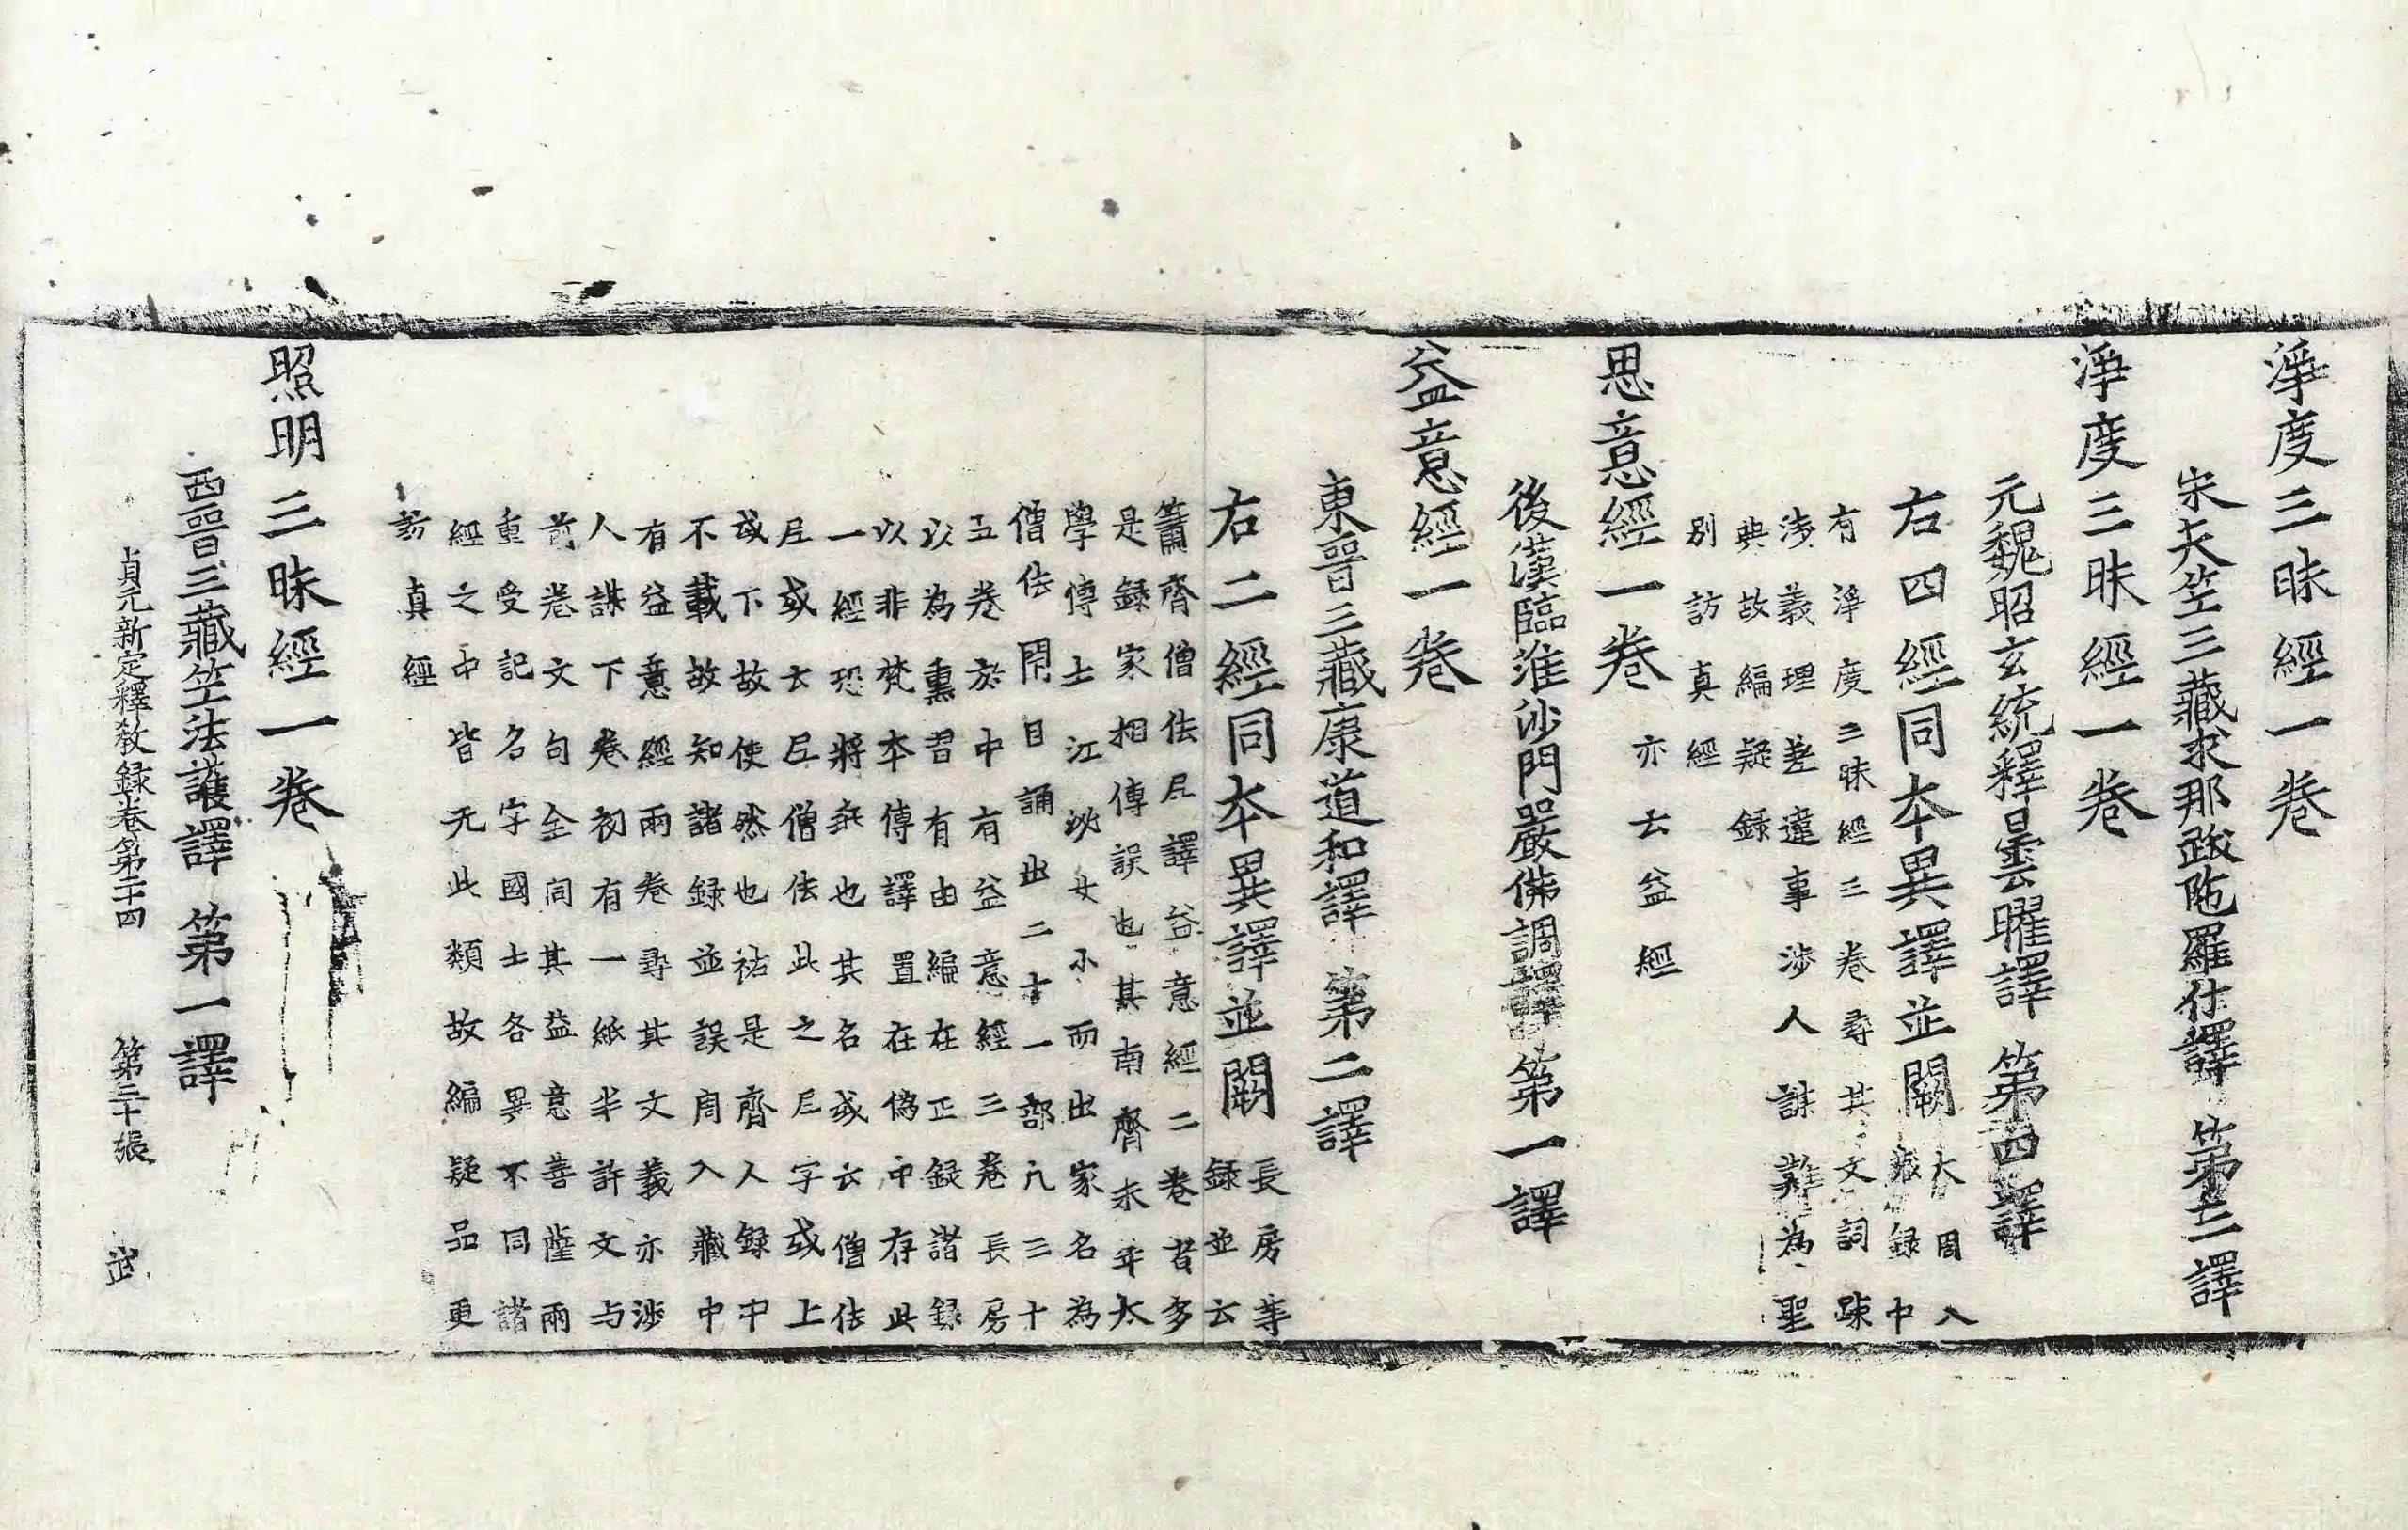 淨度三昧經一卷
宋天竺三藏求那跋陁羅什譯 第三譯
淨度三昧經一卷
元魏昭玄統釋曇曜譯 第四譯
右四經同本異譯並闕
大周入
藏録中
有淨度三昧經三卷尋其文詞踈
淺義理差違事涉人謀難為聖
典故編疑録
別訪真經
思意經一卷
亦云益經
後漢臨淮沙門嚴佛調譯 第一譯
益意經一卷
東晉三藏康道和譯 第二譯
右二經同本異譯並闕
長房等
録並云
蕭齊僧佉尼譯益意經二卷者多
是錄家相傳誤也其南齊末年太
學傅士江泌女小而出家名為
僧佉 閇目誦出二十一部凡三十
五卷於中有益意經三卷長房
以為熏習有由編在正録諸録
以非梵本傳譯置在偽中存此
一經恐將乖也其名或云僧佉
尼或云尼僧佉此之尼字或上
或下故使然也祐是齊人録中
不載故知諸録並誤周入藏中
有益意經兩卷尋其文義亦涉
人謀下卷初有一紙半許文与
前卷文句全同其益意菩薩兩
重受記名字國土各異不同諸
經之中皆无此類故編疑品更
訪真經
照明三昧經一卷
西晉三藏竺法護譯 第一譯
貞元新定釋教録卷第二十四 第三十張 武